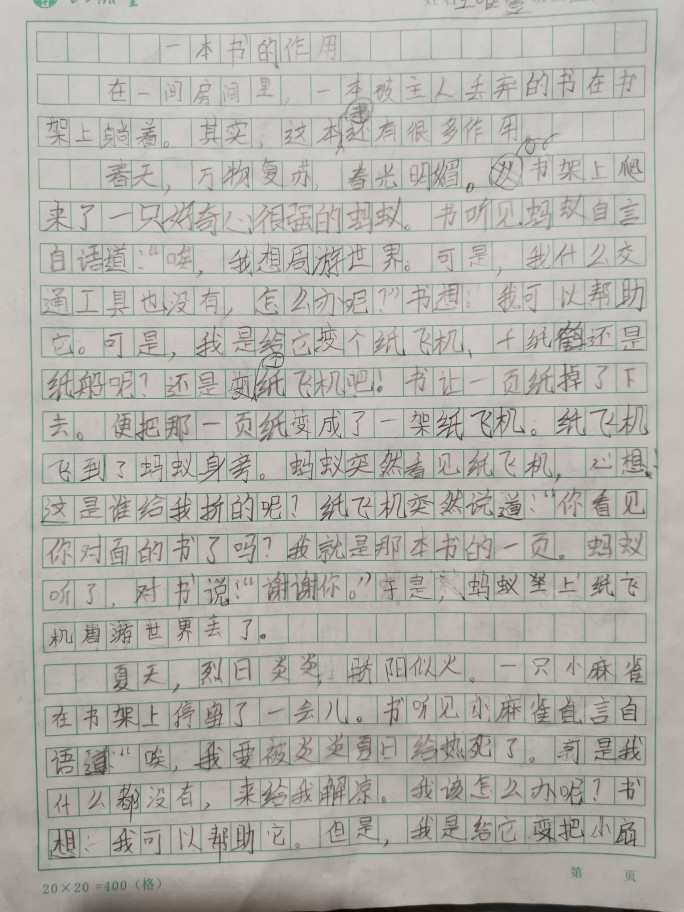 一本书的作用
在一间房间里，一本被主人丢弃的书在书
架上躺着。其实，这本书还有很多作用
春天，万物复苏，春光明媚。书架上爬
来了一只好奇心很强的蚂蚁。书听见蚂蚁自言
自语道："唉，我想周游世界。可是，我什么交
通工具也没有，怎么办呢？"书想：我可以帮助
它。可是，我是给它变个纸飞机、千纸鹤还是
纸船呢？还是变个纸飞机吧！书让一页纸掉了下
去。便把那一页纸变成了一架纸飞机。纸飞机
飞到了蚂蚁身旁。蚂蚁突然看见纸飞机，心想：
这是谁给我折的呢？纸飞机突然说道："你看见
你对面的书了吗？我就是那本书的一页。蚂蚁
听了，对书说："谢谢你。"于是，蚂蚁坐上纸飞
机周游世界去了。
夏天，烈日炎炎，骄阳似火。一只小麻雀
在书架上停留了一会儿。书听见小麻雀自言自
语道："唉，我要被炎炎夏日给热死了。可是我
什么都没有，来给我解凉。我该怎么办呢？书
想：我可以帮助它。但是，我是给它变把小扇
20×20=400（格）
第 页